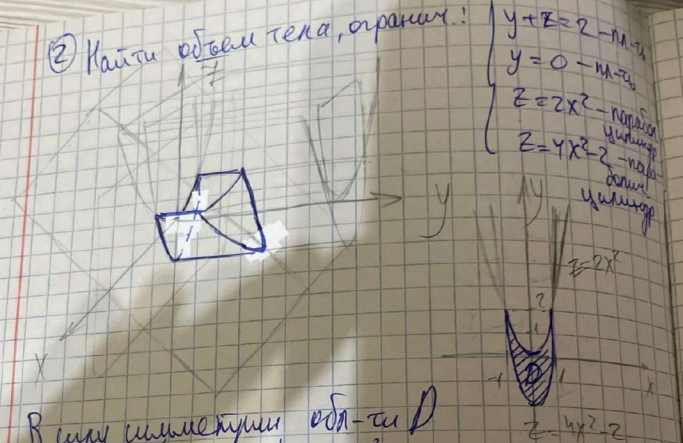 ② Найти объем тела, огранич.:
y+z=2 – пл-ть
y=0 – пл-ть
z=2x² – парабол. цилиндр
z=4x²-2 – пара-
болич.
цилиндр
z
y
x
y
z=2x²
2
1
-1
1
D
x
z=4x²-2
В силу симметрии обл-ти D